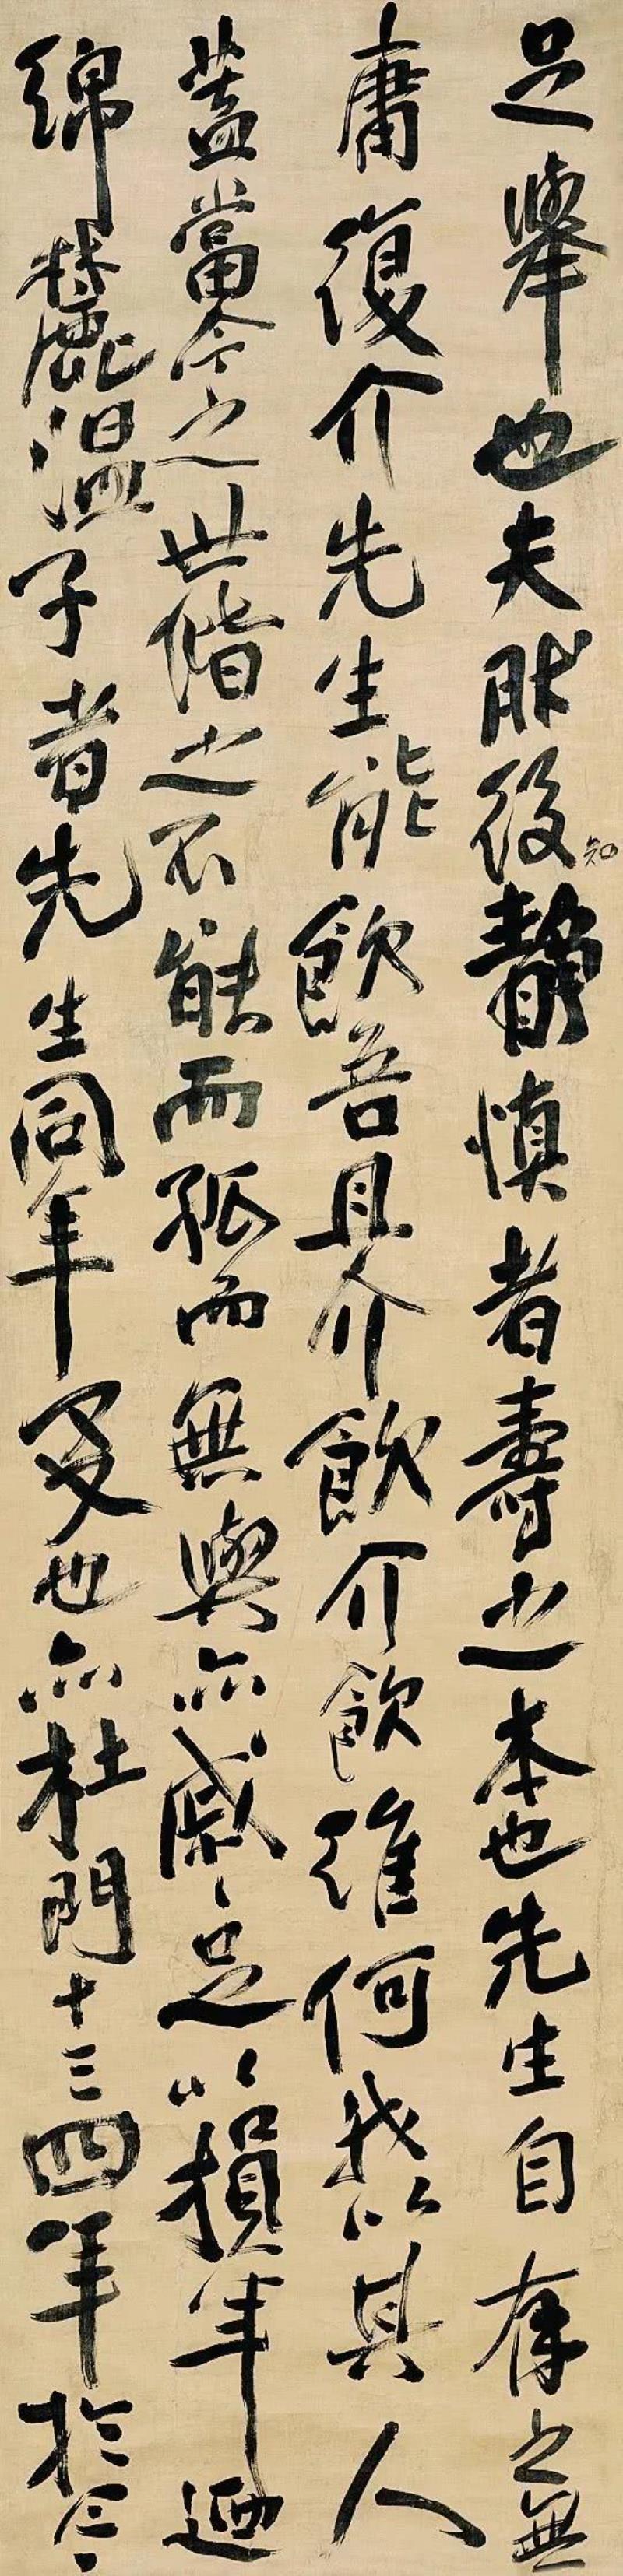 足舉也夫然後知靜慎者壽之本也先生自有之無
庸復介先生能飲吾且介飲介飲維何我以其人
蓋當今之世偕之不能而孤而無與亦戚〻足以損年迺
綿麓溫子者先生同年友也亦杜門十三四年於今